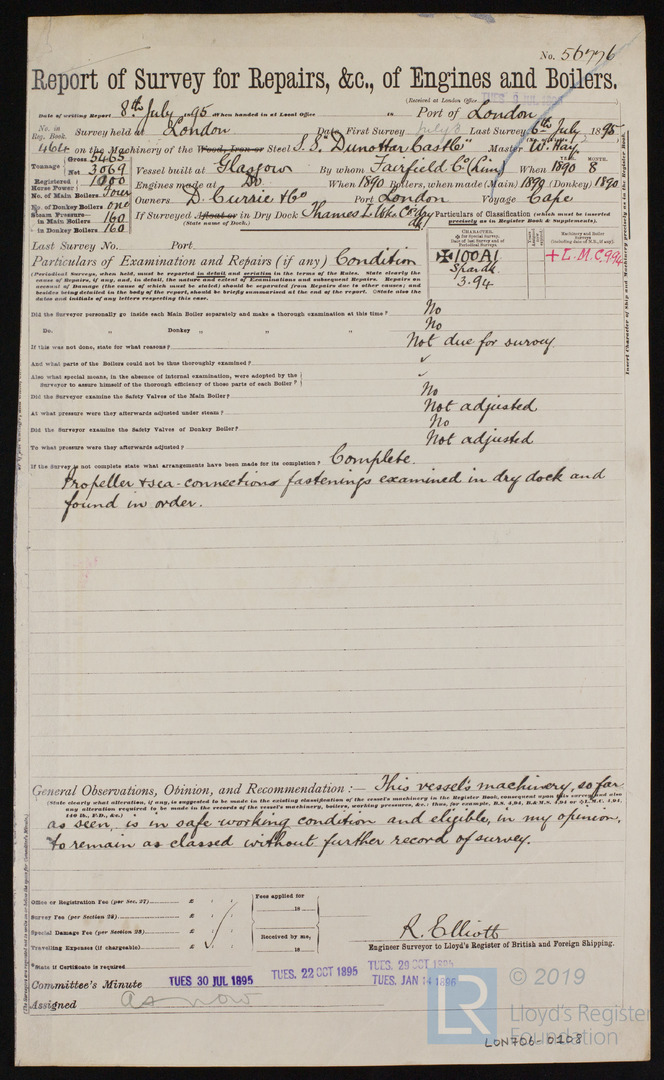 No. 56776
Report of Survey for Repairs, &c., of Engines and Boilers.
(Received at London Office
Date of writing Report 8th July 1895 When handed in at Local Office in Port of London
No. in Reg. Book. Survey held at London Date, First Survey July 3 Last Survey 6th July 1895
464 on the Machinery of the Wood, Iron or Steel S.S. "Dunottar Castle" Master W. Hay.
Tonnage Gross 5465
Net 3069
Vessel built at Glasgow By whom Fairfield Co (Lim) When 1890 MONTH. 8
Registered Horse Power 1000
Engines made at Do When 1890 Boilers, when made (Main) 1890 (Donkey) 1890
No. of Main Boilers Four
Owners D. Currie & Co Port London Voyage Cape
No. of Donkey Boilers one
Steam Pressure in Main Boilers 160
in Donkey Boilers 160
If Surveyed Afloat or in Dry Dock Thames
(State name of Dock.)
Particulars of Classification (which must be inserted precisely as in Register Book & Supplements).
Last Survey No. Port
CHARACTER.
✠ for Special Survey.
Date of last Survey and of Periodical Surveys.
Machinery and Boiler Surveys
(including date of N.B., if any).
✠100A1
Spar dk.
3.94
+L.M.C 9,94
Insert Character of Ship and Machinery precisely as in the Register Book.
Particulars of Examination and Repairs (if any) Condition
(Periodical Surveys, when held, must be reported in detail and seriatim in the terms of the Rules. State clearly the
cause of Repairs, if any, and, in detail, the nature and extent of Examinations and subsequent Repairs. Repairs on
account of Damage (the cause of which must be stated) should be separated from Repairs due to other causes; and
besides being detailed in the body of the report, should be briefly summarised at the end of the report. State also the
dates and initials of any letters respecting this case.
Did the Surveyor personally go inside each Main Boiler separately and make a thorough examination at this time? No
Do. „ Donkey „ „ „ No
If this was not done, state for what reasons? Not due for survey
And what parts of the Boilers could not be thoroughly examined? ✓
Also what special means, in the absence of internal examination, were adopted by the
Surveyor to assure himself of the thorough efficiency of those parts of each Boiler? ✓
Did the Surveyor examine the Safety Valves of the Main Boiler? No
At what pressure were they afterwards adjusted under steam? Not adjusted
Did the Surveyor examine the Safety Valves of Donkey Boiler? No
To what pressure were they afterwards adjusted? Not adjusted
If the Survey is not complete state what arrangements have been made for its completion? Complete.
Propeller & sea-connections fastenings examined in dry dock and
found in order.
General Observations, Opinion, and Recommendation:— This vessel's machinery, so far
(State clearly what alteration, if any, is suggested to be made in the existing classification of the vessel's machinery in the Register Book, consequent upon this survey, and also
any alteration required to be made in the records of the vessel's machinery, boilers, working pressures, &c.: thus, for example, B.S. 4,94, B.&M.S. 4,94 or ✠L.M.C. 4,94,
140 lb., F.D., &c.)
as seen, is in safe working condition and eligible, in my opinion,
to remain as classed without further record of survey.
Office or Registration Fee (per Sec. 27) £
Survey Fee (per Section 28) £
Special Damage Fee (per Section 28) £
Travelling Expenses (if chargeable) £
Fees applied for
18
Received by me,
18
R. Elliott
Engineer Surveyor to Lloyd's Register of British and Foreign Shipping.
*State if Certificate is required
Committee's Minute TUES 30 JUL 1895 TUES. 22 OCT 1895 TUES. 29 OCT 1895
TUES. JAN 14 1896
Assigned as now
LR
© 2019
Lloyd's Register
Foundation
LON706-0208